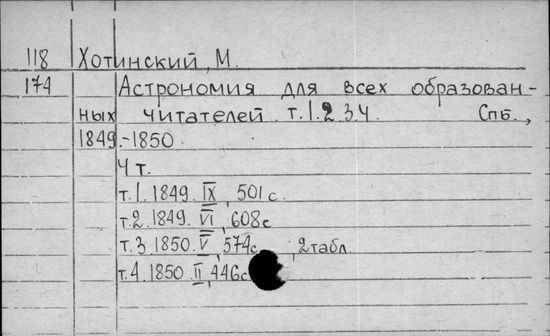 118 Хотинский, М.
174 Астрономия для всех образован-
ных читателей. т.1.2.3.4. Спб.,
1849.-1850.
4 т.
т.1. 1849. IX, 501 с.
т.2. 1849. VI, 608с
т.3 1850. V, 574с., 2 табл.
т.4. 1850. II, 446с